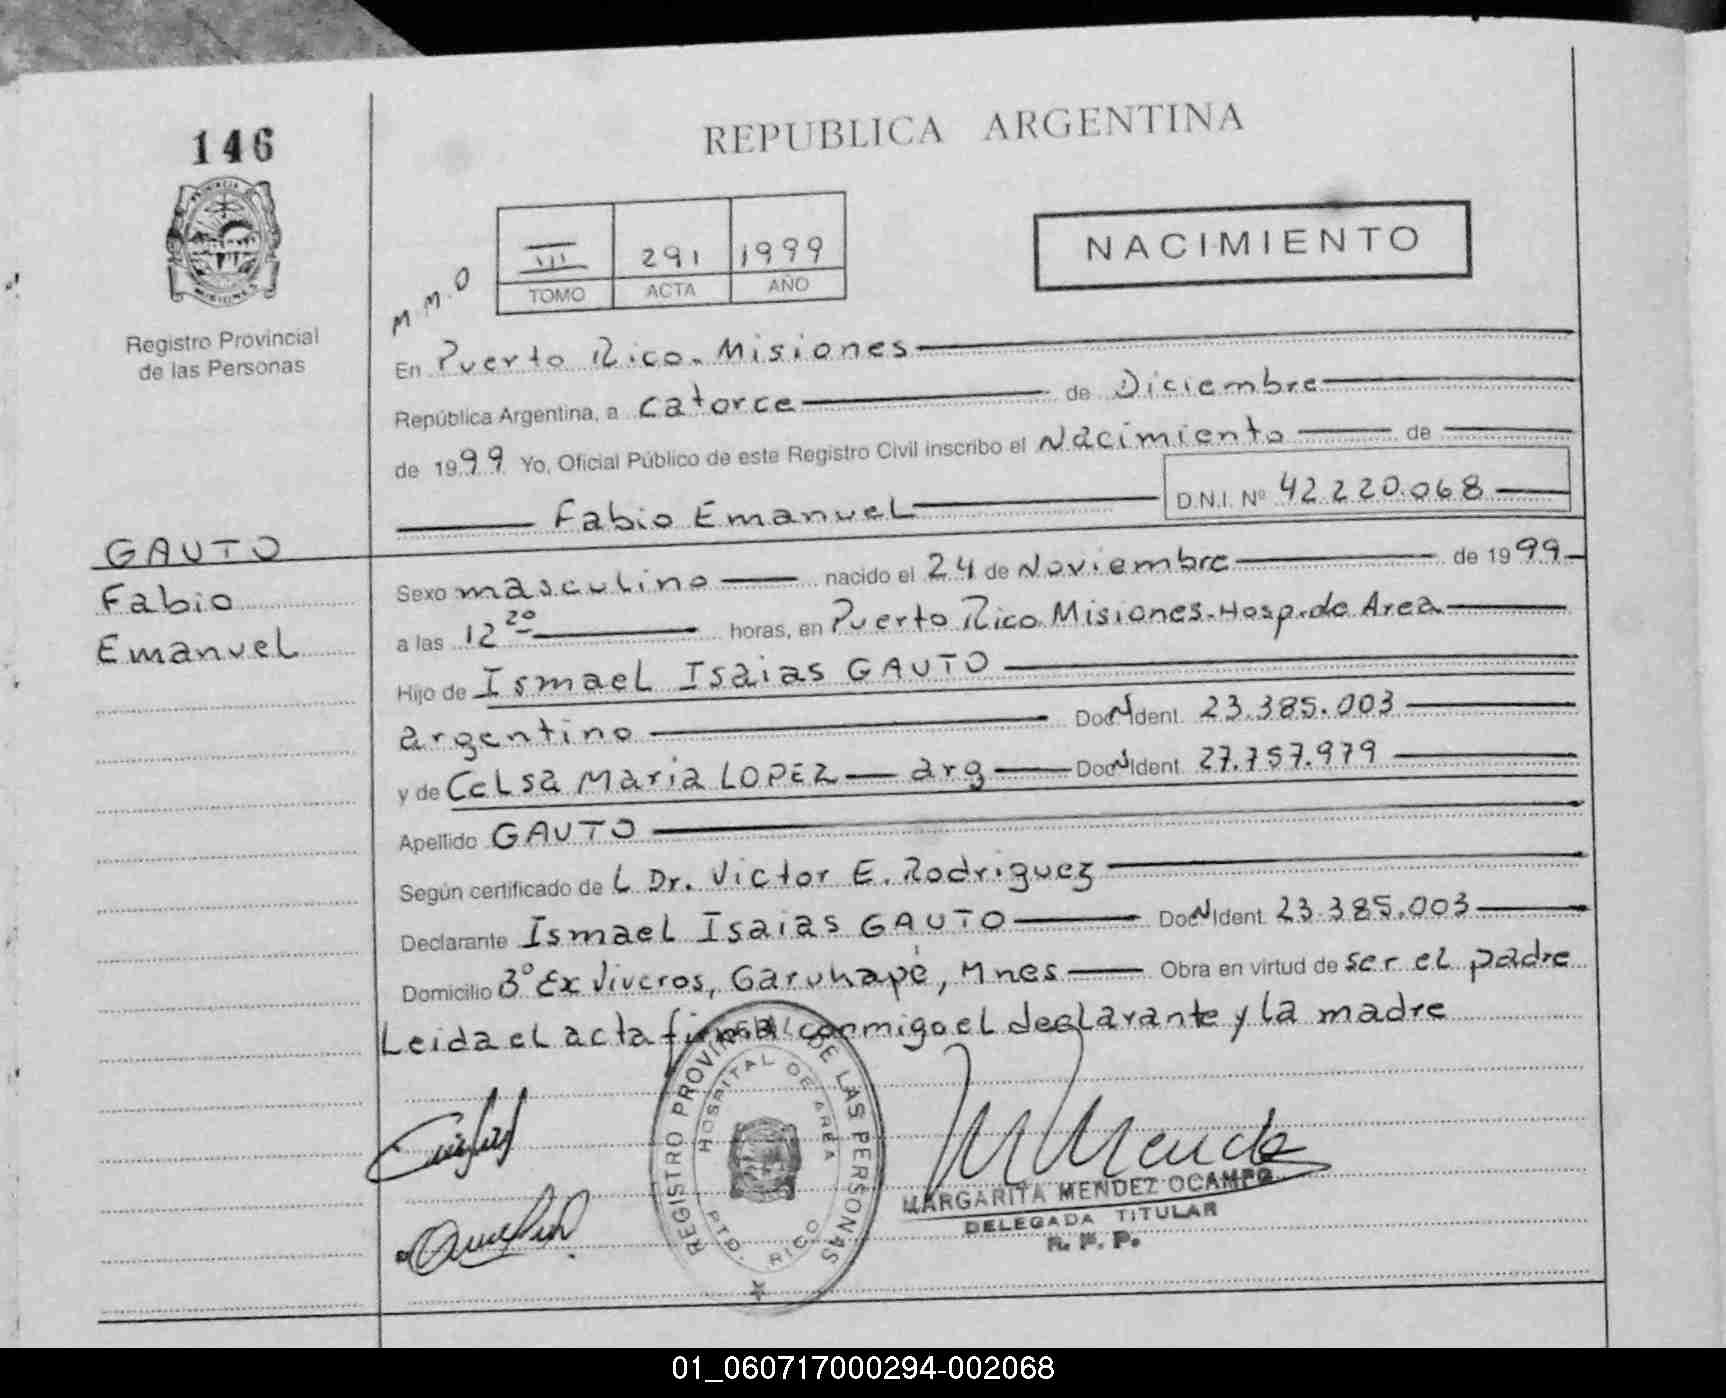 146
REPUBLICA ARGENTINA
PROVINCIA DE MISIONES
Registro Provincial
de las Personas
III 291 1999
TOMO ACTA AÑO
NACIMIENTO
M.M.O
En Puerto Rico. Misiones
República Argentina, a catorce de Diciembre
de 1999 Yo, Oficial Público de este Registro Civil inscribo el Nacimiento de
Fabio Emanuel D.N.I. Nº 42.220.068
GAUTO
Fabio
Emanuel
Sexo masculino nacido el 24 de Noviembre de 1999
a las 12 20 horas, en Puerto Rico Misiones. Hosp. de Area
Hijo de Ismael Isaias GAUTO
argentino Doc N Ident. 23.385.003
y de Celsa Maria LOPEZ arg Doc N Ident. 27.757.979
Apellido GAUTO
Según certificado de L Dr. Victor E. Rodriguez
Declarante Ismael Isaias GAUTO Doc N Ident. 23.385.003
Domicilio Bº Ex Viveros, Garuhapé, Mnes Obra en virtud de ser el padre
Leida el acta firma conmigo el declarante y la madre
REGISTRO PROVINCIAL DE LAS PERSONAS
HOSPITAL DE AREA
PTO. RICO
M Mendez
MARGARITA MENDEZ OCAMPO
DELEGADA TITULAR
R. P. P.
01_060717000294-002068